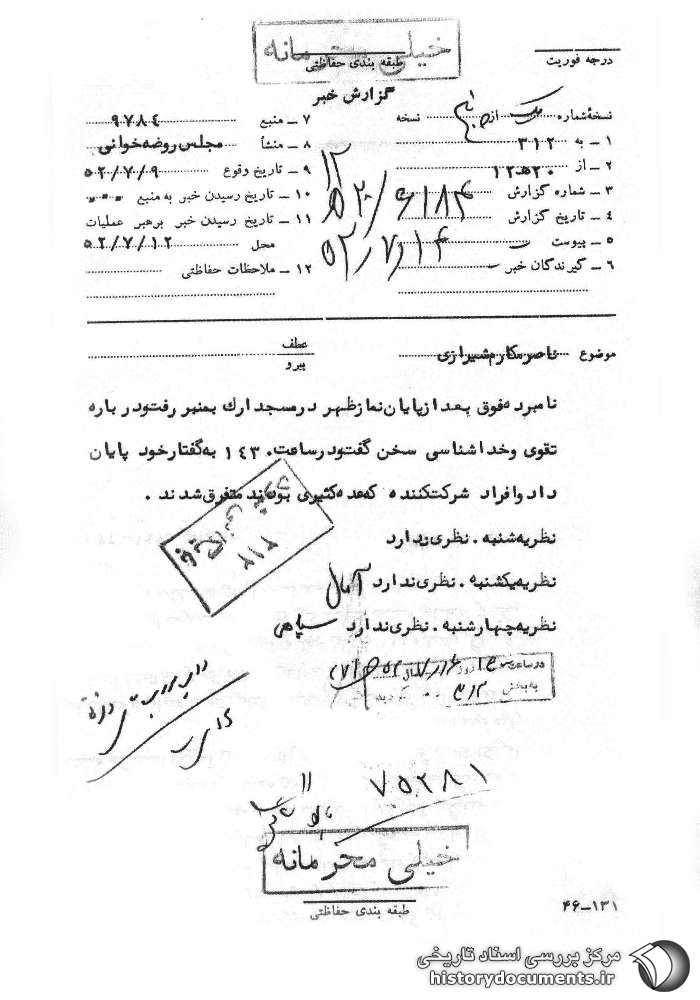 خیلی محرمانه
طبقه بندی حفاظتی
درجه فوریت
گزارش خبر
نسخهٔ شماره یک از نسخه
۱ ــ به ۳۱۲
۲ ــ از ۱۲ ه‍ ۲۰
۳ ــ شماره گزارش
۴ ــ تاریخ گزارش ۵۲/۷/۱۴
۵ ــ پیوست
۶ ــ گیرندگان خبر
۷ ــ منبع ۹۷۸۴
۸ ــ منشأ مجلس روضه خوانی
۹ ــ تاریخ وقوع ۵۲/۷/۹
۱۰ ــ تاریخ رسیدن خبر به منبع
۱۱ ــ تاریخ رسیدن خبر برهبر عملیات
محل ۵۲/۷/۱۲
۱۲ ــ ملاحظات حفاظتی
موضوع ناصر مکارم شیرازی
عطف
پیرو
نامبرده فوق بعد از پایان نماز ظهر در مسجد ارك بمنبر رفت و در باره
تقوی و خدا شناسی سخن گفت و در ساعت ۱۴۳۰ به گفتار خود پایان
داد و افراد شرکت کننده که عده کثیری بودند متفرق شدند .
نظریه شنبه . نظری ندارد
نظریه یکشنبه . نظری ندارد آمال
نظریه چهارشنبه . نظری ندارد سپاهی
در ساعت
روز
به بخش ۳۱۲
۷۵۲۸۱
خیلی محرمانه
طبقه بندی حفاظتی
۴۶-۱۳۱
مرکز بررسی اسناد تاریخی
historydocuments.ir